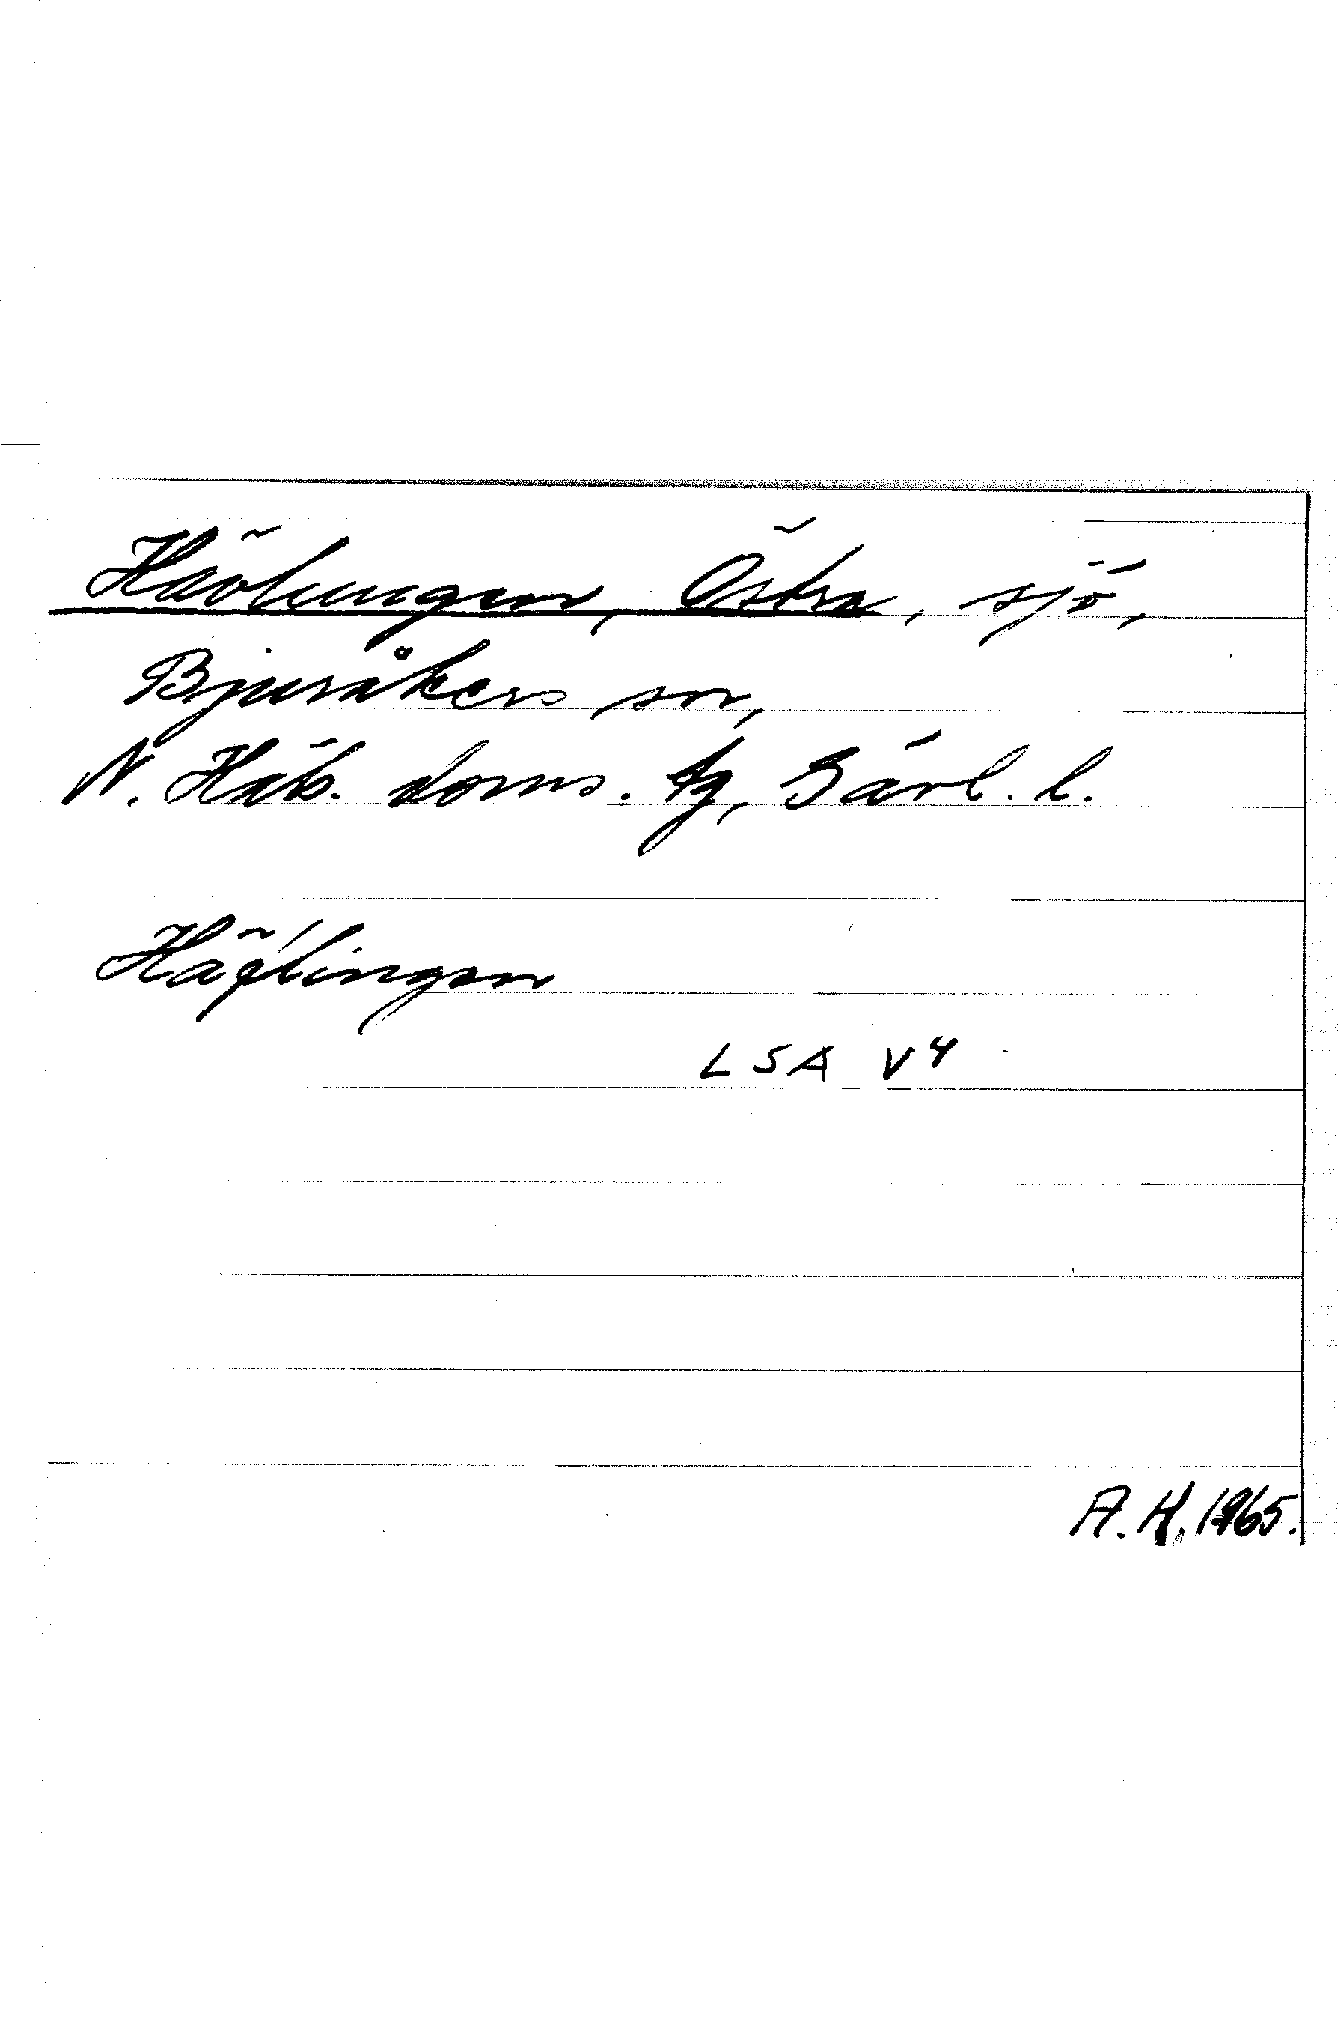 Hävlingen, Östra, sjö,
Bjuråkers sn,
N. Häls. doms. tg, Gävl. l.
Häflingen
LSA V4
A. H. 1965.